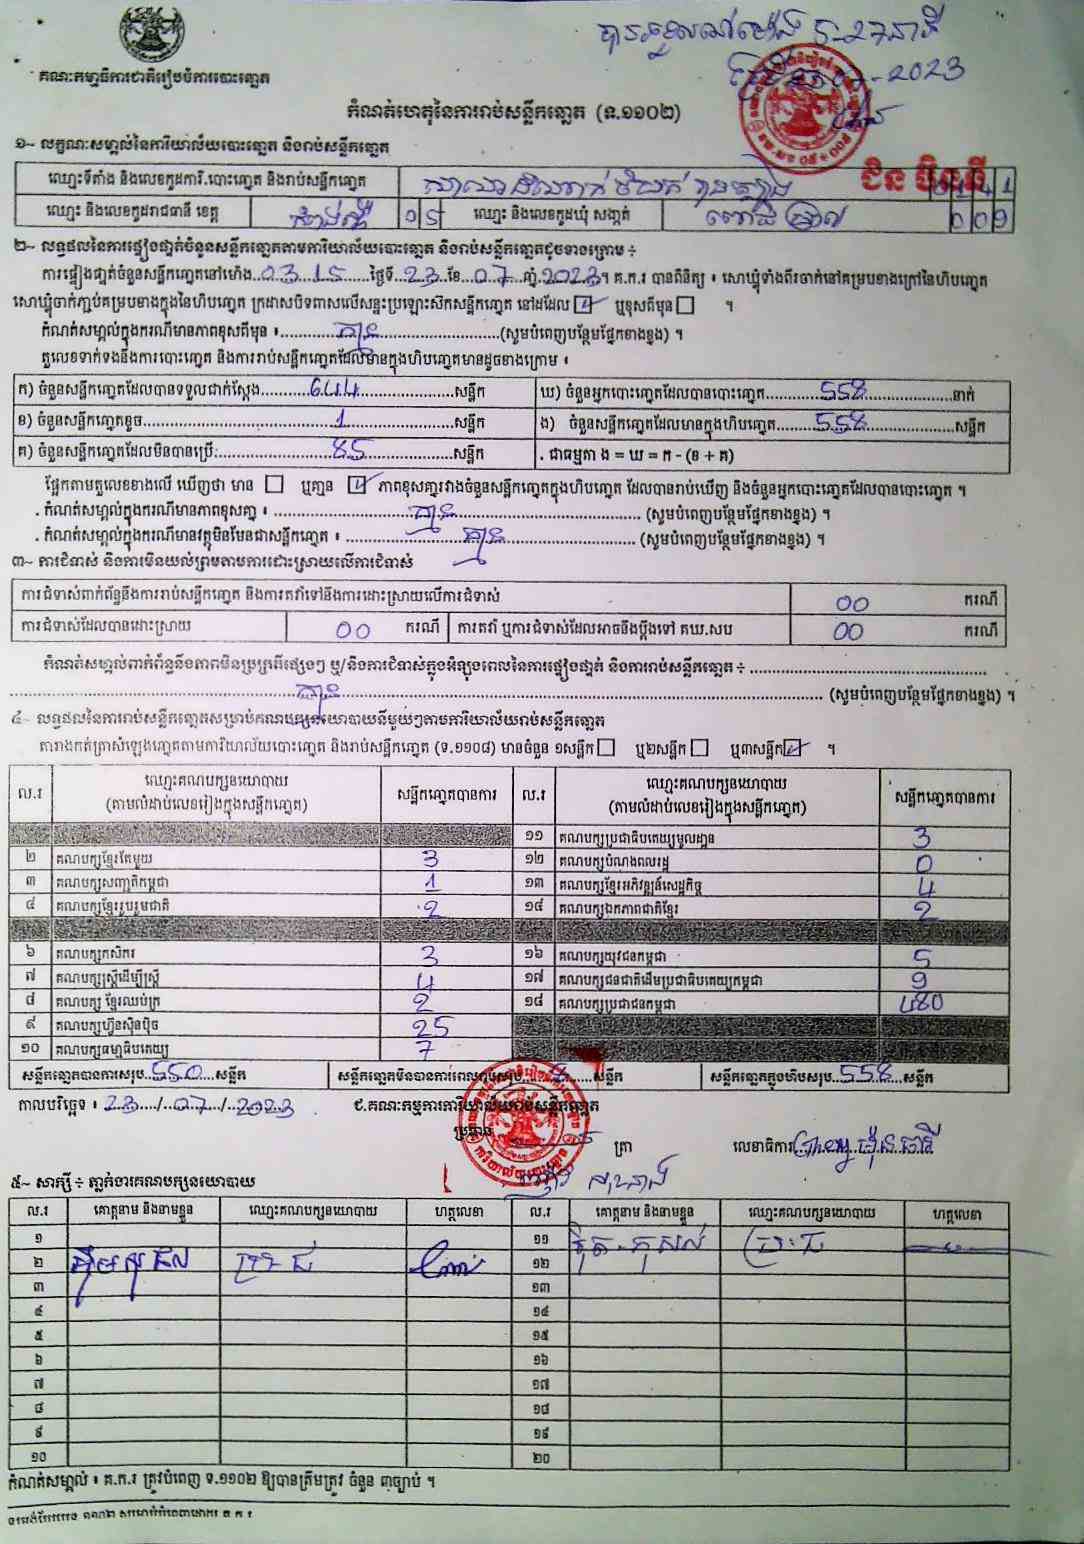 បានទទួលនៅម៉ោង 5-27នាទី
2023
គណៈកម្មាធិការជាតិរៀបចំការបោះឆ្នោត
កំណត់ហេតុនៃការរាប់សន្លឹកឆ្នោត (ទ.១១០២)
១~ លក្ខណៈសម្គាល់នៃការិយាល័យបោះឆ្នោត និងរាប់សន្លឹកឆ្នោត
ជិន ម៉ិនលី
ឈ្មោះទីតាំង និងលេខកូដការិ.បោះឆ្នោត និងរាប់សន្លឹកឆ្នោត
ឈ្មោះ និងលេខកូដរាជធានី ខេត្ត 05 ឈ្មោះ និងលេខកូដឃុំ សង្កាត់ 009
២~ លទ្ធផលនៃការផ្ទៀងផ្ទាត់ចំនួនសន្លឹកឆ្នោតតាមការិយាល័យបោះឆ្នោត និងរាប់សន្លឹកឆ្នោតដូចខាងក្រោម ÷
ការផ្ទៀងផ្ទាត់ចំនួនសន្លឹកឆ្នោតនៅម៉ោង..03:15......ថ្ងៃទី..23..ខែ..07..ឆ្នាំ.2023។ គ.ក.រ បានពិនិត្យ ៖ សោឃ្មុំទាំងពីរចាក់នៅគម្របខាងក្រៅនៃហិបឆ្នោត
សោឃ្មុំចាក់ភ្ជាប់គម្របខាងក្នុងនៃហិបឆ្នោត ក្រដាសបិទពាសលើសន្ទះប្រឡោះស៊កសន្លឹកឆ្នោត នៅដដែល ☑ ឬខុសពីមុន ☐ ។
កំណត់សម្គាល់ក្នុងករណីមានភាពខុសពីមុន ៖ គ្មាន (សូមបំពេញបន្ថែមផ្នែកខាងខ្នង) ។
តួលេខទាក់ទងនឹងការបោះឆ្នោត និងការរាប់សន្លឹកឆ្នោតដែលមានក្នុងហិបឆ្នោតមានដូចខាងក្រោម ៖
ក) ចំនួនសន្លឹកឆ្នោតដែលបានទទួលជាក់ស្តែង 644 សន្លឹក ឃ) ចំនួនអ្នកបោះឆ្នោតដែលបានបោះឆ្នោត 558 នាក់
ខ) ចំនួនសន្លឹកឆ្នោតខូច 1 សន្លឹក ង) ចំនួនសន្លឹកឆ្នោតដែលមានក្នុងហិបឆ្នោត 558 សន្លឹក
គ) ចំនួនសន្លឹកឆ្នោតដែលមិនបានប្រើ 85 សន្លឹក . ជាធម្មតា ង = ឃ = ក - (ខ + គ)
ផ្អែកតាមតួលេខខាងលើ ឃើញថា មាន ☐ ឬគ្មាន ☑ ភាពខុសគ្នារវាងចំនួនសន្លឹកឆ្នោតក្នុងហិបឆ្នោត ដែលបានរាប់ឃើញ និងចំនួនអ្នកបោះឆ្នោតដែលបានបោះឆ្នោត ។
. កំណត់សម្គាល់ក្នុងករណីមានភាពខុសគ្នា ៖ គ្មាន (សូមបំពេញបន្ថែមផ្នែកខាងខ្នង) ។
. កំណត់សម្គាល់ក្នុងករណីមានវត្ថុមិនមែនជាសន្លឹកឆ្នោត ៖ គ្មាន (សូមបំពេញបន្ថែមផ្នែកខាងខ្នង) ។
៣~ ការជំទាស់ និងការមិនយល់ព្រមតាមការដោះស្រាយលើការជំទាស់
ការជំទាស់ពាក់ព័ន្ធនឹងការរាប់សន្លឹកឆ្នោត និងការតវ៉ាទៅនឹងការដោះស្រាយលើការជំទាស់ 00 ករណី
ការជំទាស់ដែលបានដោះស្រាយ 00 ករណី ការតវ៉ា ឬការជំទាស់ដែលអាចនឹងប្តឹងទៅ គឃ.សប 00 ករណី
កំណត់សម្គាល់ពាក់ព័ន្ធនឹងភាពមិនប្រក្រតីផ្សេងៗ ឬ/និងការជំទាស់ក្នុងអំឡុងពេលនៃការផ្ទៀងផ្ទាត់ និងការរាប់សន្លឹកឆ្នោត ÷
គ្មាន (សូមបំពេញបន្ថែមផ្នែកខាងខ្នង) ។
៤~ លទ្ធផលនៃការរាប់សន្លឹកឆ្នោតសម្រាប់គណបក្សនយោបាយនីមួយៗតាមការិយាល័យរាប់សន្លឹកឆ្នោត
តារាងកត់ត្រាសំឡេងឆ្នោតតាមការិយាល័យបោះឆ្នោត និងរាប់សន្លឹកឆ្នោត (ទ.១១០៨) មានចំនួន ១សន្លឹក ☐ ឬ២សន្លឹក ☐ ឬ៣សន្លឹក ☑ ។
ល.រ ឈ្មោះគណបក្សនយោបាយ (តាមលំដាប់លេខរៀងក្នុងសន្លឹកឆ្នោត) សន្លឹកឆ្នោតបានការ ល.រ ឈ្មោះគណបក្សនយោបាយ (តាមលំដាប់លេខរៀងក្នុងសន្លឹកឆ្នោត) សន្លឹកឆ្នោតបានការ
១១ គណបក្សប្រជាធិបតេយ្យមូលដ្ឋាន 3
២ គណបក្សខ្មែរតែមួយ 3 ១២ គណបក្សបំណងពលរដ្ឋ 0
៣ គណបក្សសញ្ជាតិកម្ពុជា 1 ១៣ គណបក្សខ្មែរអភិវឌ្ឍន៍សេដ្ឋកិច្ច 4
៤ គណបក្សខ្មែររួបរួមជាតិ 2 ១៤ គណបក្សឯកភាពជាតិខ្មែរ 2
៦ គណបក្សកសិករ 3 ១៦ គណបក្សយុវជនកម្ពុជា 5
៧ គណបក្សស្ត្រីដើម្បីស្ត្រី 4 ១៧ គណបក្សជនជាតិដើមប្រជាធិបតេយ្យកម្ពុជា 9
៨ គណបក្ស ខ្មែរឈប់ក្រ 2 ១៨ គណបក្សប្រជាជនកម្ពុជា 480
៩ គណបក្សហ៊្វុនស៊ិនប៉ិច 25
១០ គណបក្សធម្មាធិបតេយ្យ 7
សន្លឹកឆ្នោតបានការសរុប..550....សន្លឹក សន្លឹកឆ្នោតមិនបានការពេលរាប់សរុប..8......សន្លឹក សន្លឹកឆ្នោតក្នុងហិបសរុប..558...សន្លឹក
កាលបរិច្ឆេទ ៖ 23/07/2023 ជ.គណៈកម្មការការិយាល័យរាប់សន្លឹកឆ្នោត
ប្រធាន ត្រា លេខាធិការ
៥~ សាក្សី ÷ ភ្នាក់ងារគណបក្សនយោបាយ
ល.រ គោត្តនាម និងនាមខ្លួន ឈ្មោះគណបក្សនយោបាយ ហត្ថលេខា ល.រ គោត្តនាម និងនាមខ្លួន ឈ្មោះគណបក្សនយោបាយ ហត្ថលេខា
១ ១១
២ ១២
៣ ១៣
៤ ១៤
៥ ១៥
៦ ១៦
៧ ១៧
៨ ១៨
៩ ១៩
១០ ២០
កំណត់សម្គាល់ ៖ គ.ក.រ ត្រូវបំពេញ ទ.១១០២ ឱ្យបានត្រឹមត្រូវ ចំនួន ៣ច្បាប់ ។